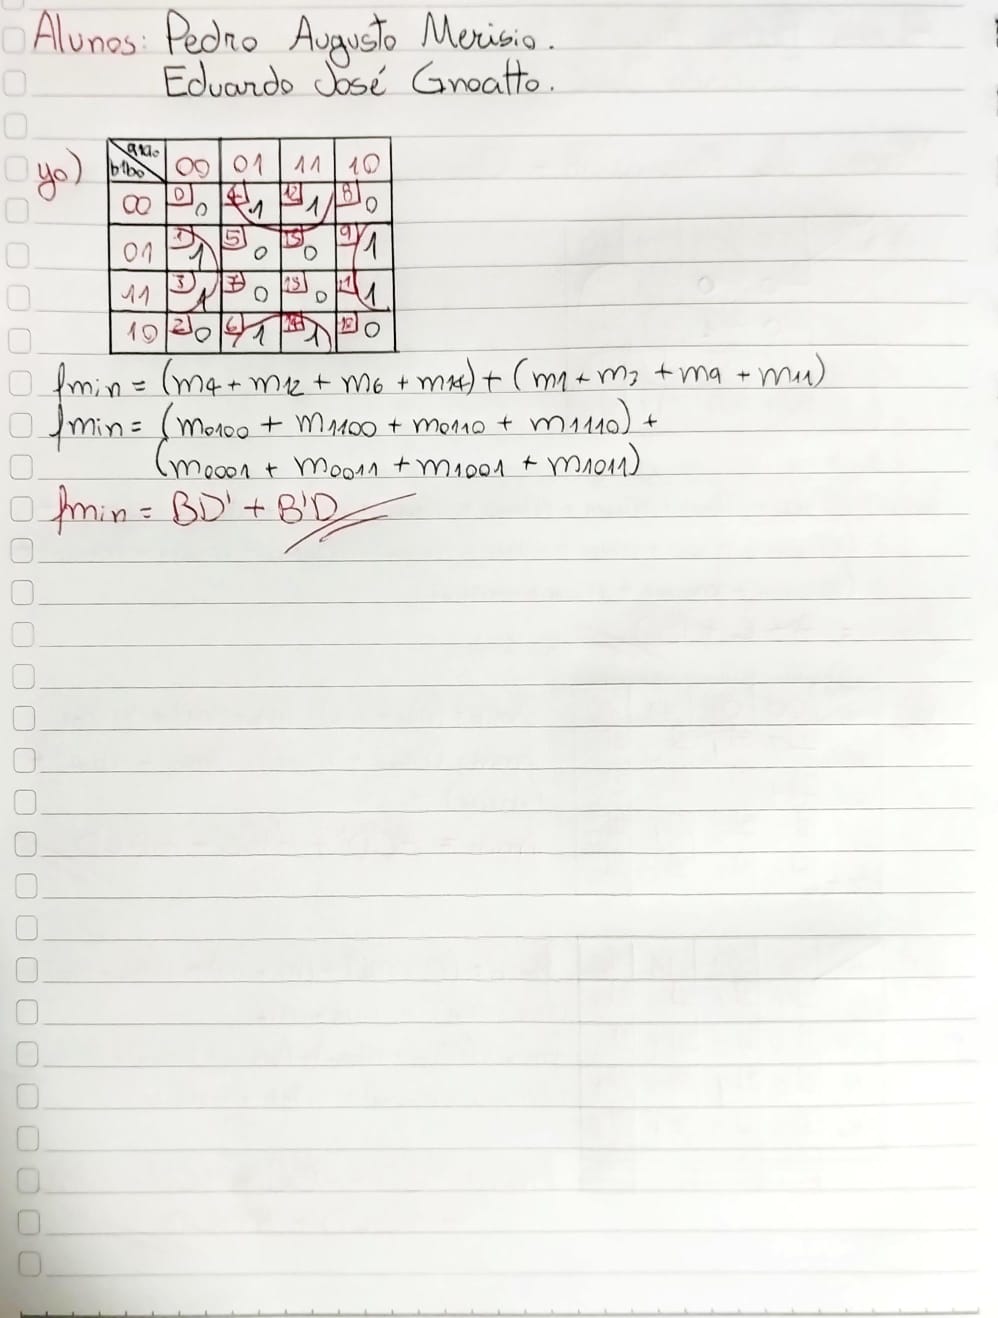 Alunos: Pedro Augusto Merisio.
Eduardo José Gnoatto.
y0)
a1a0 00 01 11 10
b1b0
00 0 0 4 1 12 1 8 0
01 1 1 5 0 13 0 9 1
11 3 1 7 0 15 0 11 1
10 2 0 6 1 14 1 10 0
fmin = (m4 + m12 + m6 + m14) + (m1 + m3 + m9 + m11)
fmin = (m0100 + m1100 + m0110 + m1110) +
(m0001 + m0011 + m1001 + m1011)
fmin = BD' + B'D